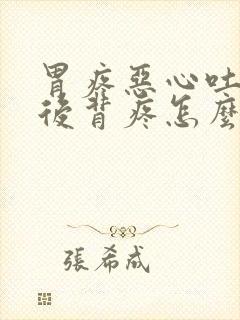 胃疼惡心吐
後背疼怎麼
張希成